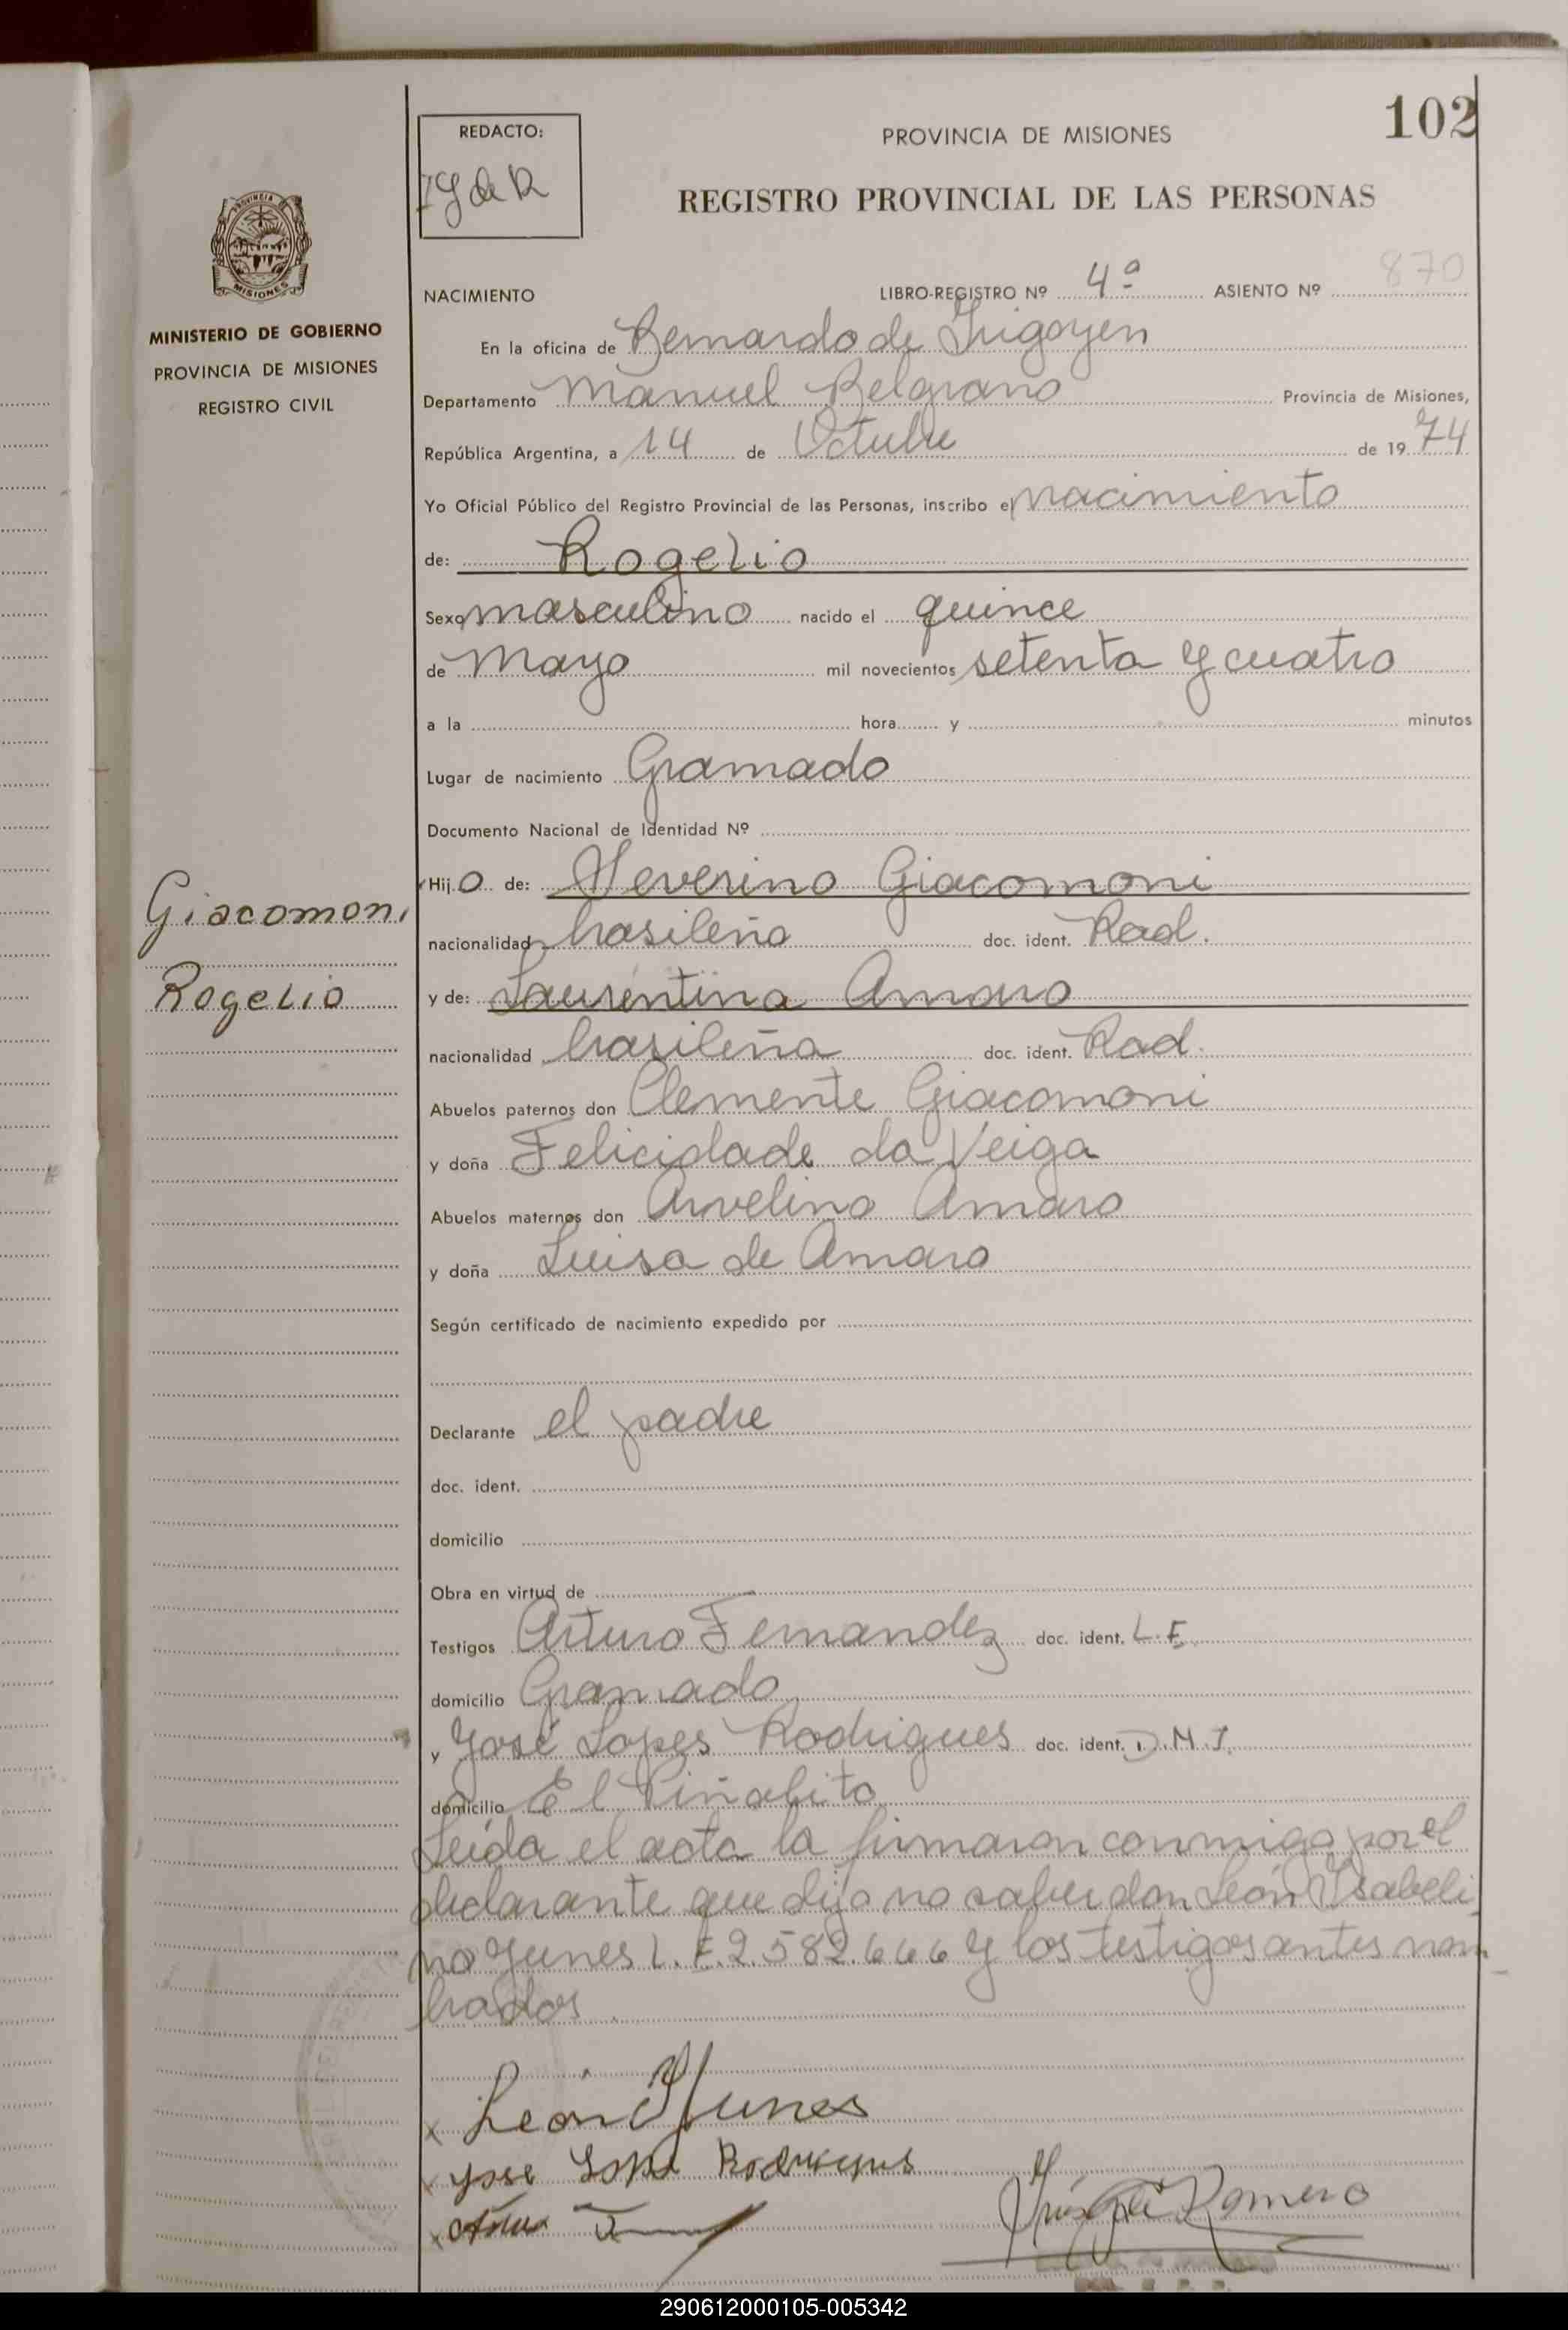 102
REDACTO:
PROVINCIA DE MISIONES
REGISTRO PROVINCIAL DE LAS PERSONAS
PROVINCIA DE
MISIONES
MINISTERIO DE GOBIERNO
PROVINCIA DE MISIONES
REGISTRO CIVIL
NACIMIENTO LIBRO-REGISTRO Nº 4ª ASIENTO Nº 870
En la oficina de Bernardo de Irigoyen
Departamento Manuel Belgrano Provincia de Misiones,
República Argentina, a 14 de Octubre de 1974
Yo Oficial Público del Registro Provincial de las Personas, inscribo el nacimiento
de: Rogelio
Sexo masculino nacido el quince
de Mayo mil novecientos setenta y cuatro
a la hora y minutos
Lugar de nacimiento Gramado
Documento Nacional de Identidad Nº
Hijo de: Severino Giacomoni
Giacomoni
nacionalidad brasileño doc. ident. Rad.
Rogelio
y de: Laurentina Amaro
nacionalidad brasileña doc. ident. Rad.
Abuelos paternos don Clemente Giacomoni
y doña Felicidade da Veiga
Abuelos maternos don Arvelino Amaro
y doña Luisa de Amaro
Según certificado de nacimiento expedido por
Declarante el padre
doc. ident.
domicilio
Obra en virtud de
Testigos Arturo Fernandez doc. ident. L.E.
domicilio Gramado
y José Lopes Rodrigues doc. ident. D.N.I.
domicilio El Piñalito
Leída el acta la firmaron conmigo, por el
declarante que dijo no saber don León Ysabeli
no Yunes L.E. 2.582.666 y los testigos antes nom
brados
x León Y Yunes
x Jose Lopes Rodrigues
x
Romero
290612000105-005342